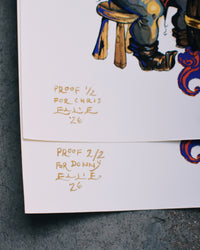 PROOF 1/2
FOR CHRIS
ELLIE
'26
PROOF 2/2
FOR DONNY
ELLIE
'26